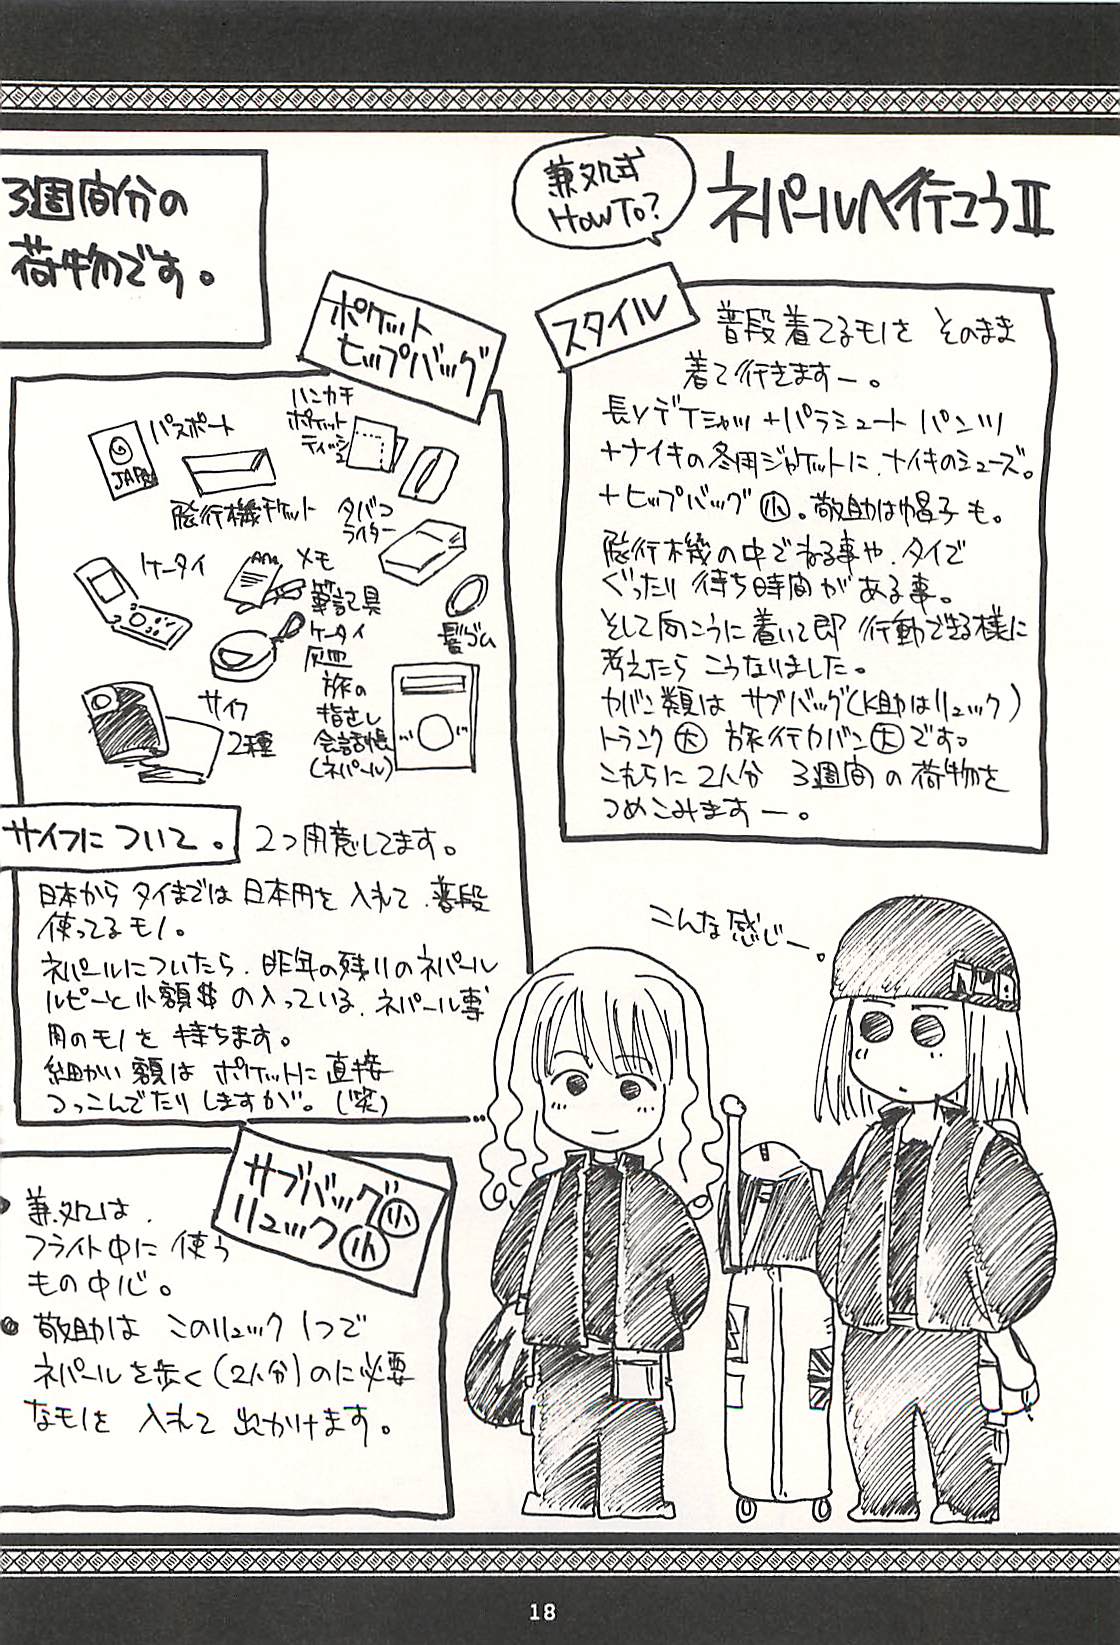 ネパールへ行こうⅡ
兼処式
HOWTO?
スタイル
普段着てるモノを そのまま
着て行きますー。
長Yデケシャツ+パラシュート パンツ
+ナイキの冬用ジャケットに、ナイキのシューズ。
+ヒップバッグ小。敬助は帽子も。
飛行機の中でねる事や、タイで
ぐったり 待ち時間がある事。
そして向こうに着いて即 行動できる様に
考えたら こうなりました。
カバン類は サブバッグ(K助はリュック)
トランク大 旅行カバン大です。
これらに 2人分 3週間の荷物を
つめこみますー。
こんな感じー。
3週間分の
荷物です。
ポケット
ヒップバッグ
パスポート
JAPA
飛行機チケット
ハンカチ
ポケット
ティッシュ
タバコ
ライター
ケータイ
メモ
筆記具
ケータイ
灰皿
髪ゴム
サイフ
2種
旅の
指さし
会話帳
(ネパール)
サイフについて。
2つ用意してます。
日本から タイまでは 日本円を 入れて、普段
使ってるモノ。
ネパールについたら、昨年の残りのネパール
ルピーと小額$の入っている、ネパール専
用のモノを 持ちます。
細かい額は ポケットに直接
つっこんでたりしますが。(笑)
サブバッグ小
リュック小
●兼処は、
フライト中に 使う
もの中心。
●敬助は このリュック1つで
ネパールを歩く(2人分)のに必要
なモノを 入れて 出かけます。
18